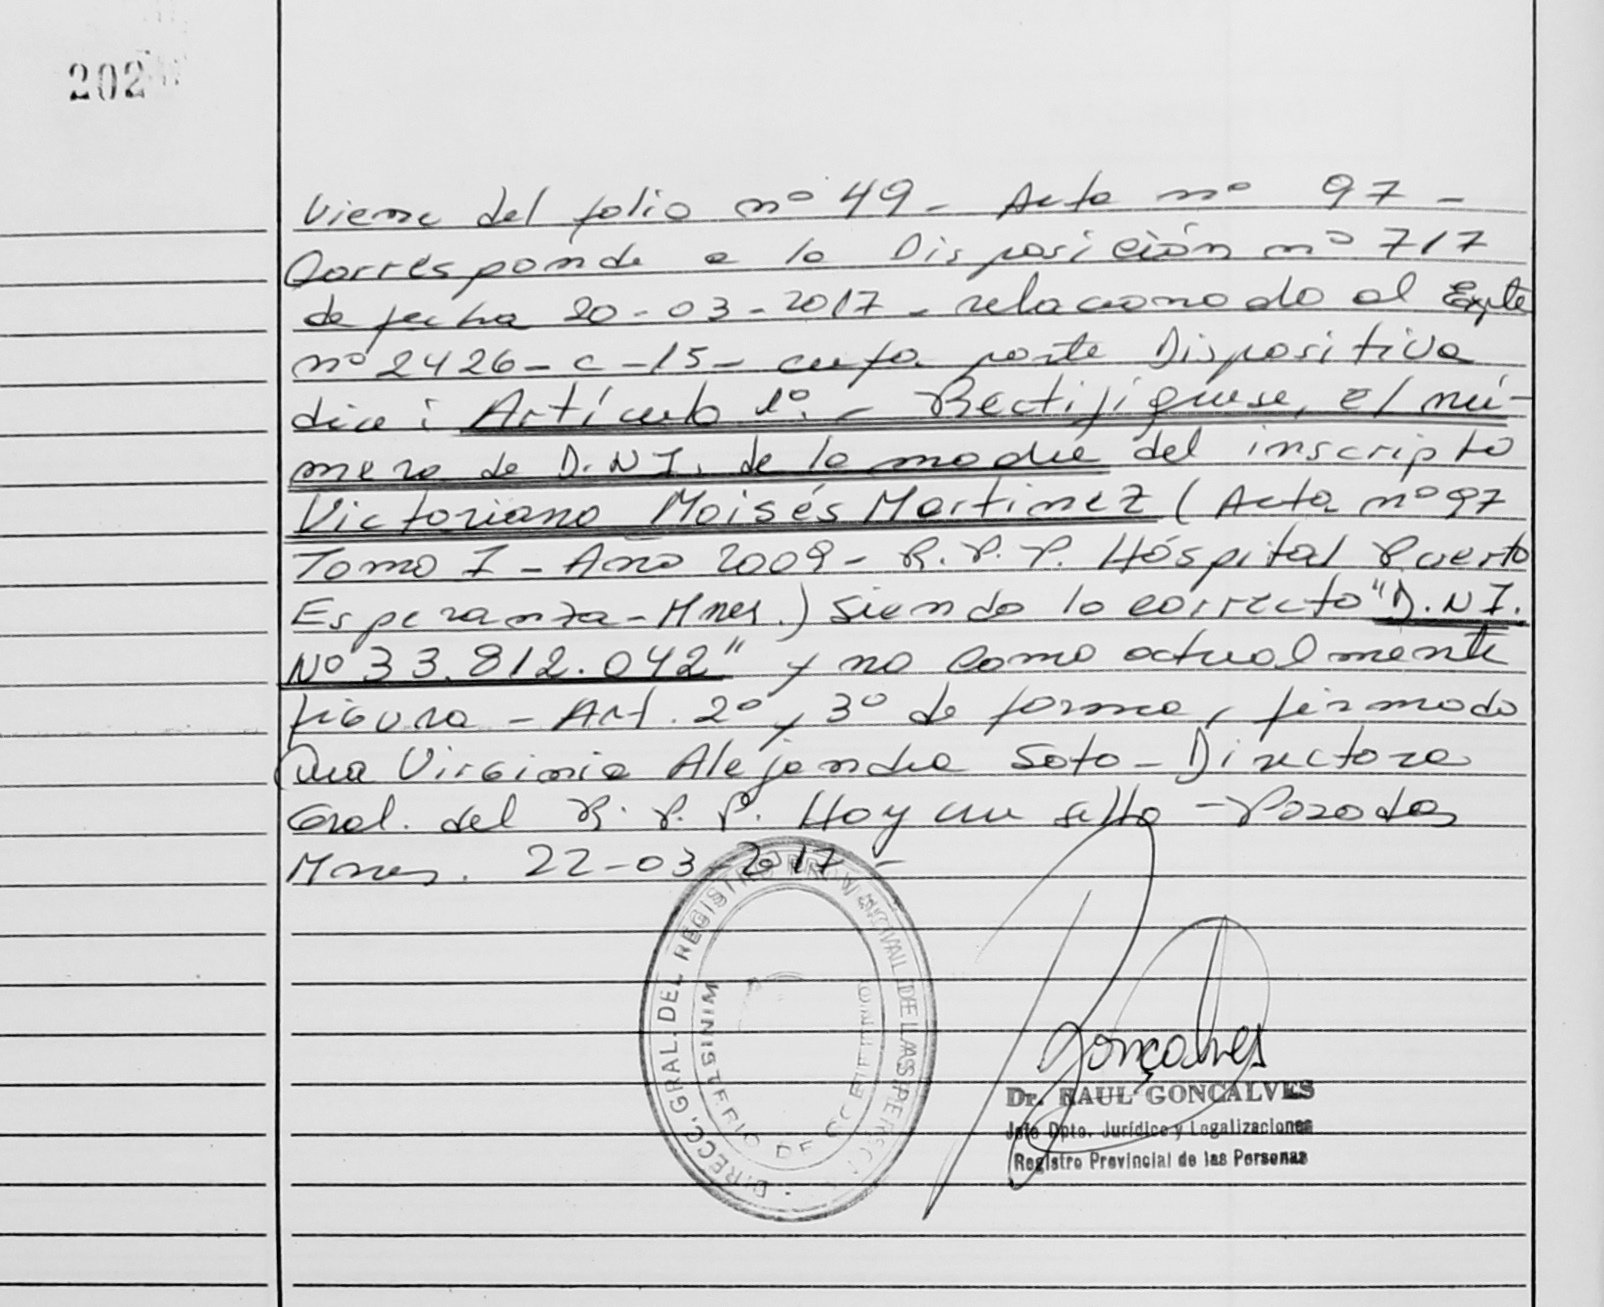 202
Viene del folio nº 49 - Acta nº 97 -
Corresponde a la Disposición nº 717
de fecha 20-03-2017 - relacionado al Expte
nº 2426-C-15- cuya parte Dispositiva
dice: Artículo 1º. - Rectifíquese, el nú-
mero de D.N.I. de la madre del inscripto
Victoriano Moisés Martinez (Acta nº 97
Tomo I - Año 2009 - R.P.P. Hóspital Puerto
Esperanza - Mnes.) siendo lo correcto "D.N.I.
Nº 33.812.042" y no como actualmente
figura - Art. 2º y 3º de forma, firmado
Dra Virginia Alejandra Soto - Directora
Gral. del R.P.P. Hoy un sello - Posadas
Mnes. 22-03-2017 -
DIRECC. GRAL. DEL REGISTRO PROVINCIAL DE LAS PERSONAS
MINISTERIO DE GOBIERNO
Gonçalves
Dr. RAUL GONCALVES
Jefe Dpto. Jurídico y Legalizaciones
Registro Provincial de las Personas